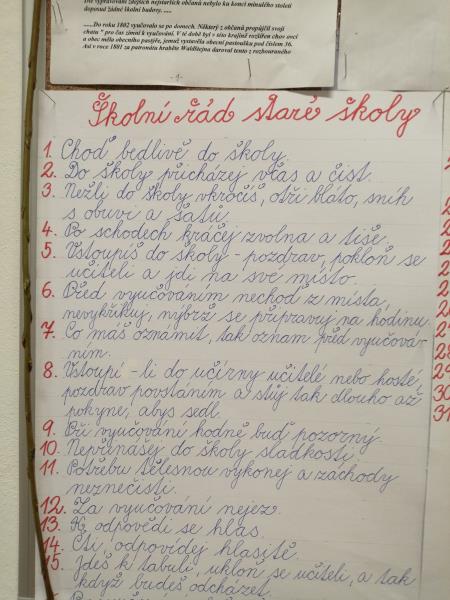 Dle vypravování zdejších nejstarších občanů nebylo ku konci minulého století
doposud žádné školní budovy. .....
.....Do roku 1802 vyučovalo se po domech. Některý z občanů propůjčil svoji
chatu " pro čas zimní k vyučování. V té době byl v této krajině rozšířen chov ovcí
a obec měla obecního pastýře, jemuž vystavěla obecní pastoušku pod číslem 36.
Asi v roce 1801 za patronátu hraběte Waldštejna daroval tento z rozbouraného
Školní řád staré školy
1. Choď bedlivě do školy.
2. Do školy přicházej včas a čist.
3. Nežli do školy vkročíš, otři bláto, sníh
s obuvi a šatů.
4. Po schodech kráčej zvolna a tiše.
5. Vstoupíš do školy - pozdrav, pokloň se
učiteli a jdi na své místo.
6. Před vyučováním nechoď z místa,
nevykřikuj, nýbrž se připravuj na hodinu.
7. Co máš oznámit, tak oznam před vyučová-
ním.
8. Vstoupí - li do učírny učitelé nebo hosté,
pozdrav povstáním a stůj tak dlouho až
pokyne, abys sedl.
9. Při vyučování hodně buď pozorný.
10. Nepřinášej do školy sladkosti.
11. Potřebu tělesnou vykonej a záchody
neznečisti.
12. Za vyučování nejez.
13. K odpovědi se hlas.
14. Čti, odpovídej hlasitě.
15. Jdeš k tabuli, ukloň se učiteli, a tak
když budeš odcházet.
28
29
30
31